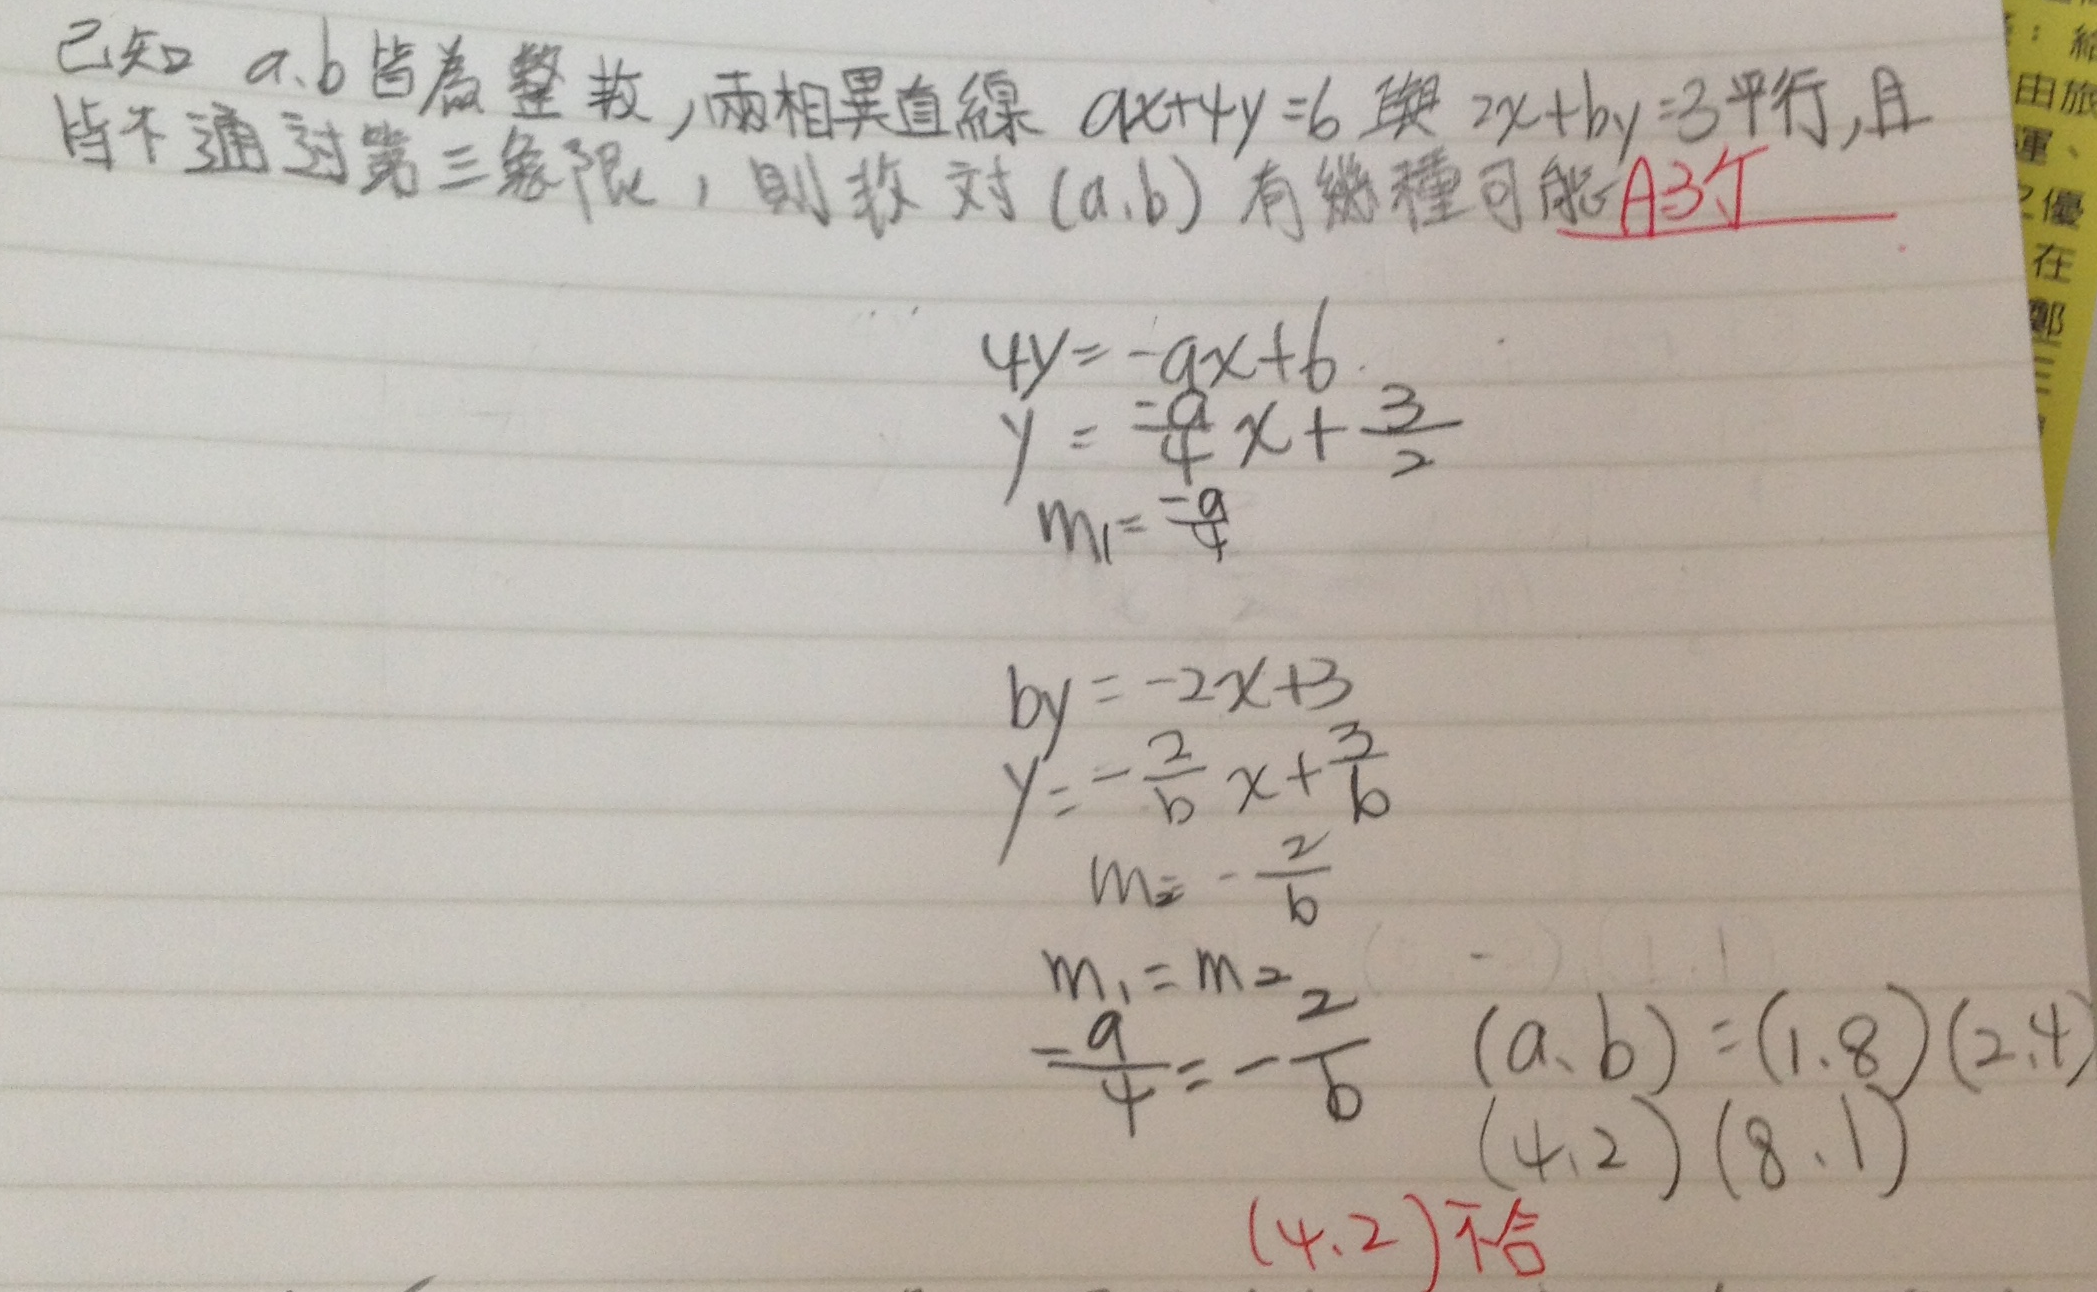 已知 a、b皆為整數,兩相異直線 ax+4y=6與 2x+by=3平行,且
皆不通過第三象限,則數對(a、b)有幾種可能A:3个
4y=-ax+6
y=\frac{-a}{4}x+\frac{3}{2}
m1=\frac{-a}{4}
by=-2x+3
y=-\frac{2}{b}x+\frac{3}{b}
m2=-\frac{2}{b}
m1=m2
\frac{-a}{4}=-\frac{2}{b} (a、b)=(1、8)(2、4)
(4、2)(8、1)
(4、2)不合
:
由旅
運、
優
在
鄭
三